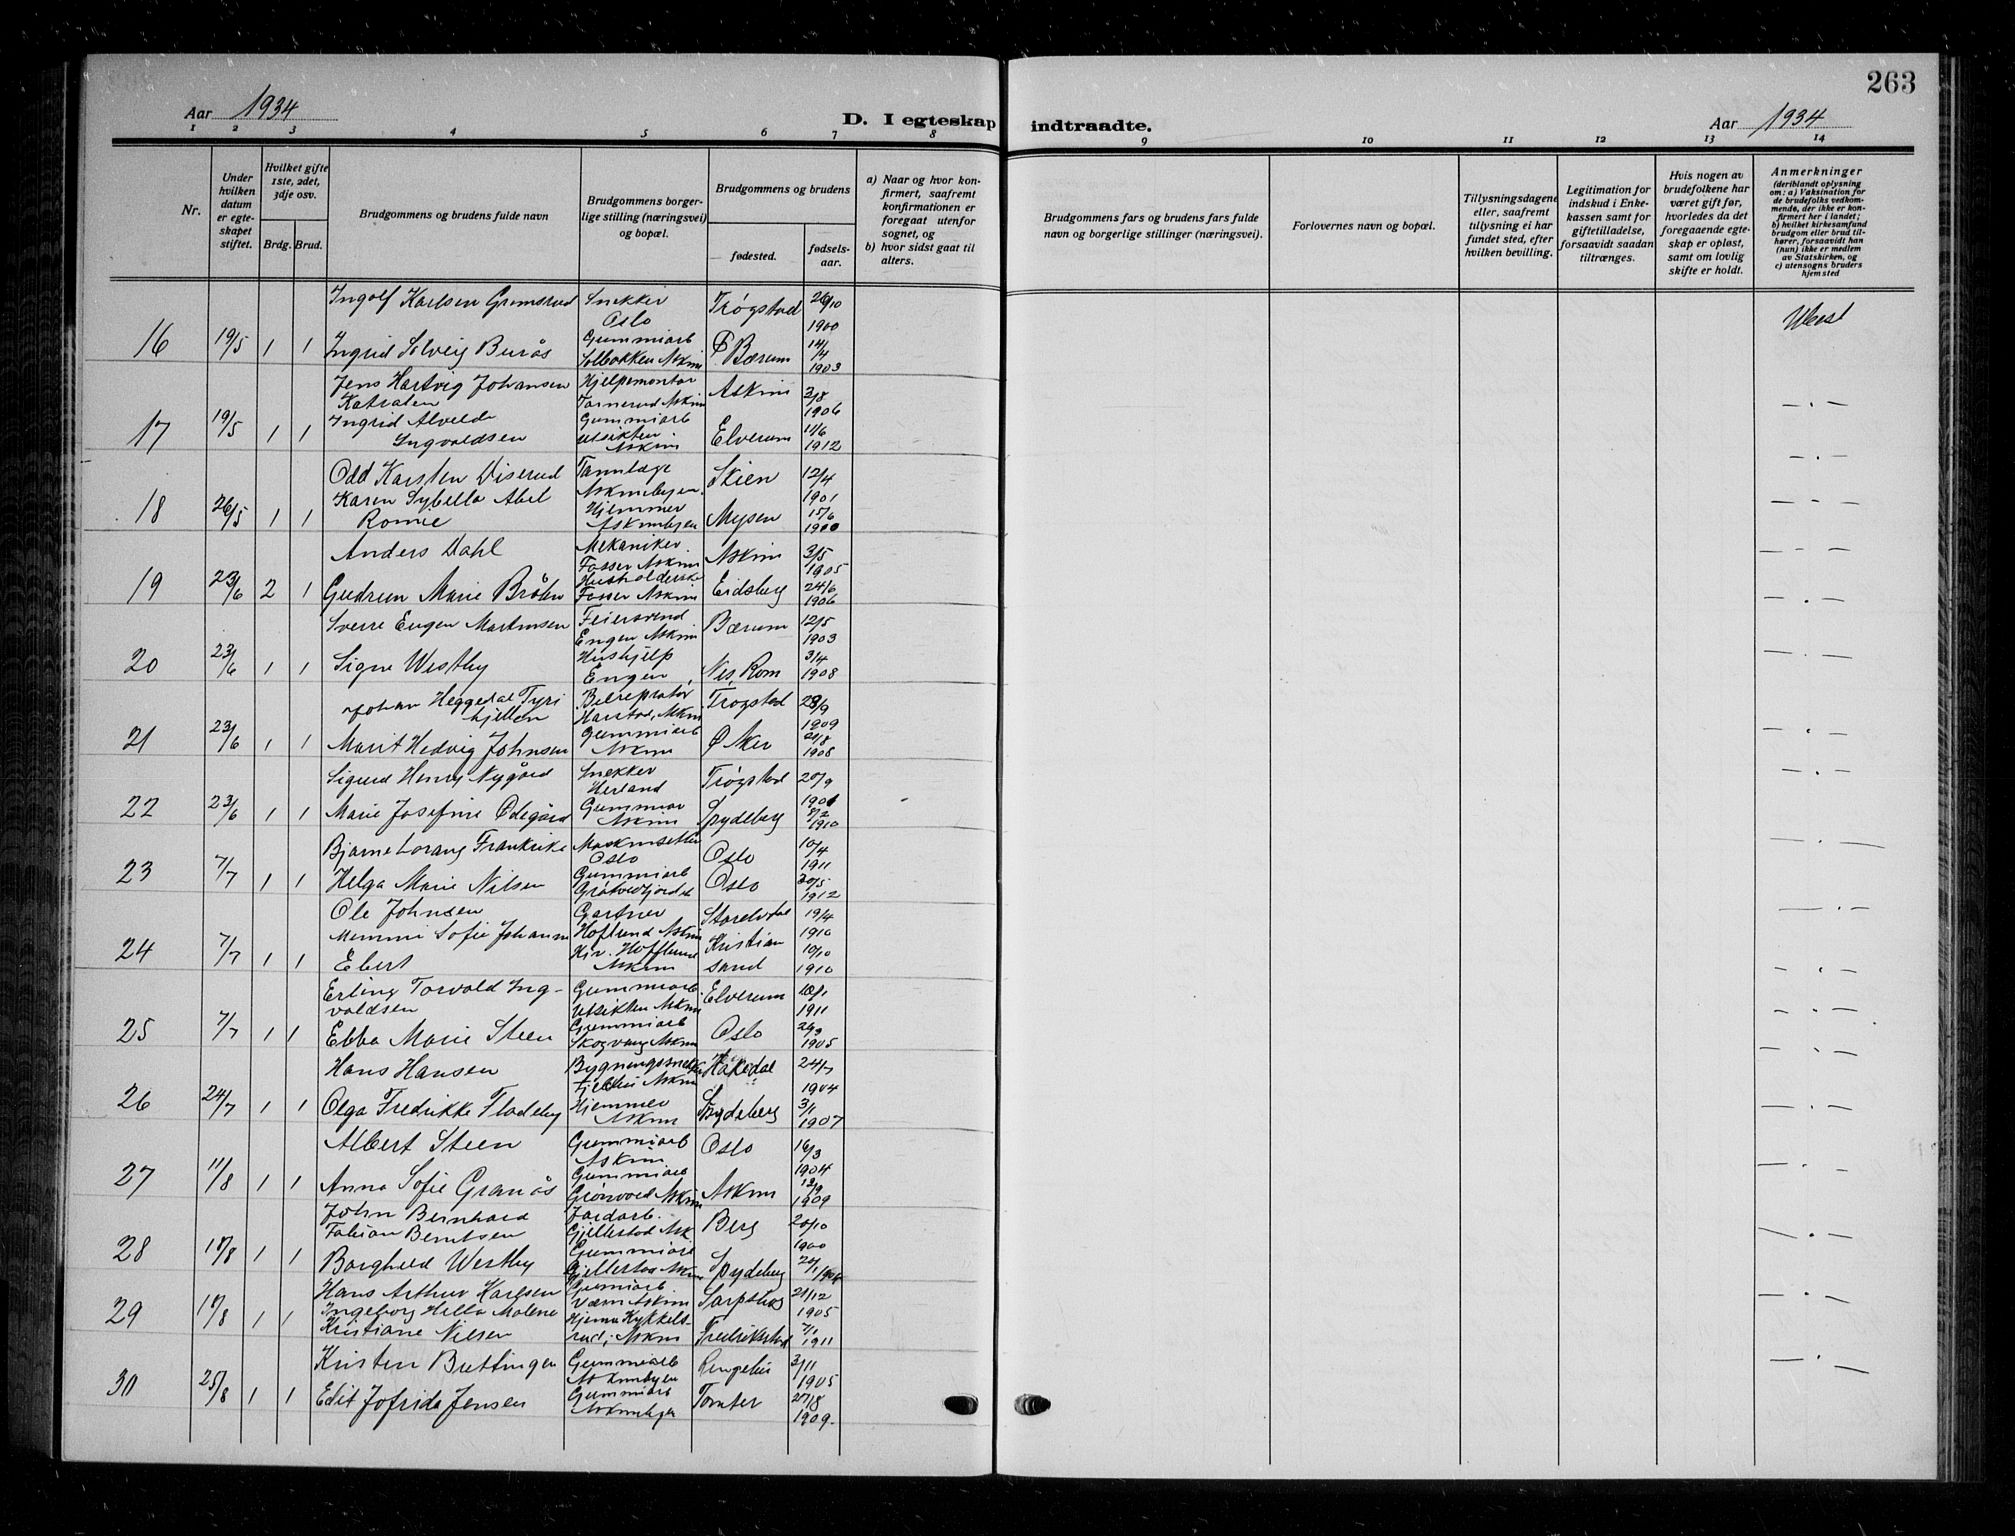 263
Aar 1934
D. I egteskap indtraadte.
Aar 1934
1 2 3 4 5 6 7 8 9 10 11 12 13 14
Nr.
Under
hvilken
datum
er egte-
skapet
stiftet.
Hvilket gifte
1ste, 2det,
3dje osv.
Brdg. Brud.
Brudgommens og brudens fulde navn
Brudgommens borger-
lige stilling (næringsvei)
og bopæl.
Brudgommens og brudens
fødested.
fødsels-
aar.
a) Naar og hvor kon-
firmert, saafremt
konfirmationen er
foregaat utenfor
sognet, og
b) hvor sidst gaat til
alters.
Brudgommens fars og brudens fars fulde
navn og borgerlige stillinger (næringsvei).
Forlovernes navn og bopæl.
Tillysningsdagene
eller, saafremt
tillysning ei har
fundet sted, efter
hvilken bevilling.
Legitimation for
indskud i Enke-
kassen samt for
giftetilladelse,
forsaavidt saadan
tiltrænges.
Hvis nogen av
brudefolkene har
været gift før,
hvorledes da det
foregaaende egte-
skap er opløst,
samt om lovlig
skifte er holdt.
Anmerkninger
(deriblandt oplysning
om: a) Vaksination for
de brudefolks vedkom-
mende, der ikke er kon-
firmert her i landet;
b) hvilket kirkesamfund
brudgom eller brud til-
hører, forsaavidt han
(hun) ikke er medlem
av Statskirken, og
c) utensogns bruders
hjemsted
Ingolf Karlsen Grimsrud Snekker Trøgstad 26/10
Oslo 1900
16 19/5 1 1 Ingrid Solveig Burås Gummiarb Ø Bærum 14/4
Solbakken Askim 1903
Jens Hartvig Johansen Hjelpemontør Askim 3/8
Katralen Tornerud Askim 1906
17 19/5 1 1 Ingrid Alvilde Gummiarb Elverum 11/6
Ingvaldsen Utsikten Askim 1912
Odd Karsten Viserud Tannlæge Skien 12/4
Askimbyen 1901
18 26/5 1 1 Karen Sybella Abel Hjemmev Mysen 15/6
Romie Askimbyen 1900
Anders Dahl Mekaniker Askim 3/5
Fosser Askim 1905
19 23/6 2 1 Gudrun Marie Bråten Husholderske Eidsberg 24/6
Fosser Askim 1906
Sverre Eugen Martinsen Feiersvend Bærum 12/5
Engen Askim 1903
20 23/6 1 1 Signe Westby Hushjelp Nes, Rom 3/4
Engen 1908
Johan Heggedal Tyri Bilreprator Trøgstad 28/9
hjellen Askim 1909
21 23/6 1 1 Marit Hedvig Johnsen Gummiarb Ø Aker 21/8
Askim 1908
Sigurd Henry Nygård Snekker Trøgstad 20/9
Herland 1901
22 23/6 1 1 Marie Josefine Ødegård Gummiar Spydeberg
Askim 1910
Bjarne Lorang Frankrike Maskinsetter Oslo 10/4
Oslo 1911
23 7/7 1 1 Helga Marie Nilsen Gummiarb Oslo 30/5
1912
Ole Johnsen Gartner Storelvdal 19/4
Hoflund Askim 1910
24 7/7 1 1 Memmi Sofie Johanne Hofflund Kristian 10/10
Ebert Askim sand 1910
Erling Torvald Ing- Gummiarb Elverum
valdsen Utsikten Askim 1911
25 7/7 1 1 Ebba Marie Steen Gummiarb Oslo
Skogvang Askim 1905
Hans Hansen Bygningssnekker Hakedal 24/7
Askim 1904
26 24/7 1 1 Olga Fredrikke Fladeby Hjemmev Spydeberg 3/1
Askim 1907
Albert Steen Gummiarb Oslo 16/3
Askim 1904
27 11/8 1 1 Anna Sofie Granås Gummiarb Askim
Grønvold Askim 1909
John Bernhard Jordarb. Berg 20/10
Fabian Berntsen Gjellestad Ask 1900
28 18/8 1 1 Borghild Westby Gummiarb Spydeberg
Gjellestad Askim
Hans Arthur Karlsen Gumiarb Sarpsborg 21/12
Askim 1905
29 18/8 1 1 Ingeborg Helle Malene Hjemm Kykkels- Fredrikstad 7/1
Kristiane Nilsen rud, Askim 1911
Kristen Buttingen Gummiarb 3/11
Askimbyen 1905
30 25/8 1 1 Edit Jofrida Jensen Gummiarb Tomter 27/8
Askimbyen 1909.